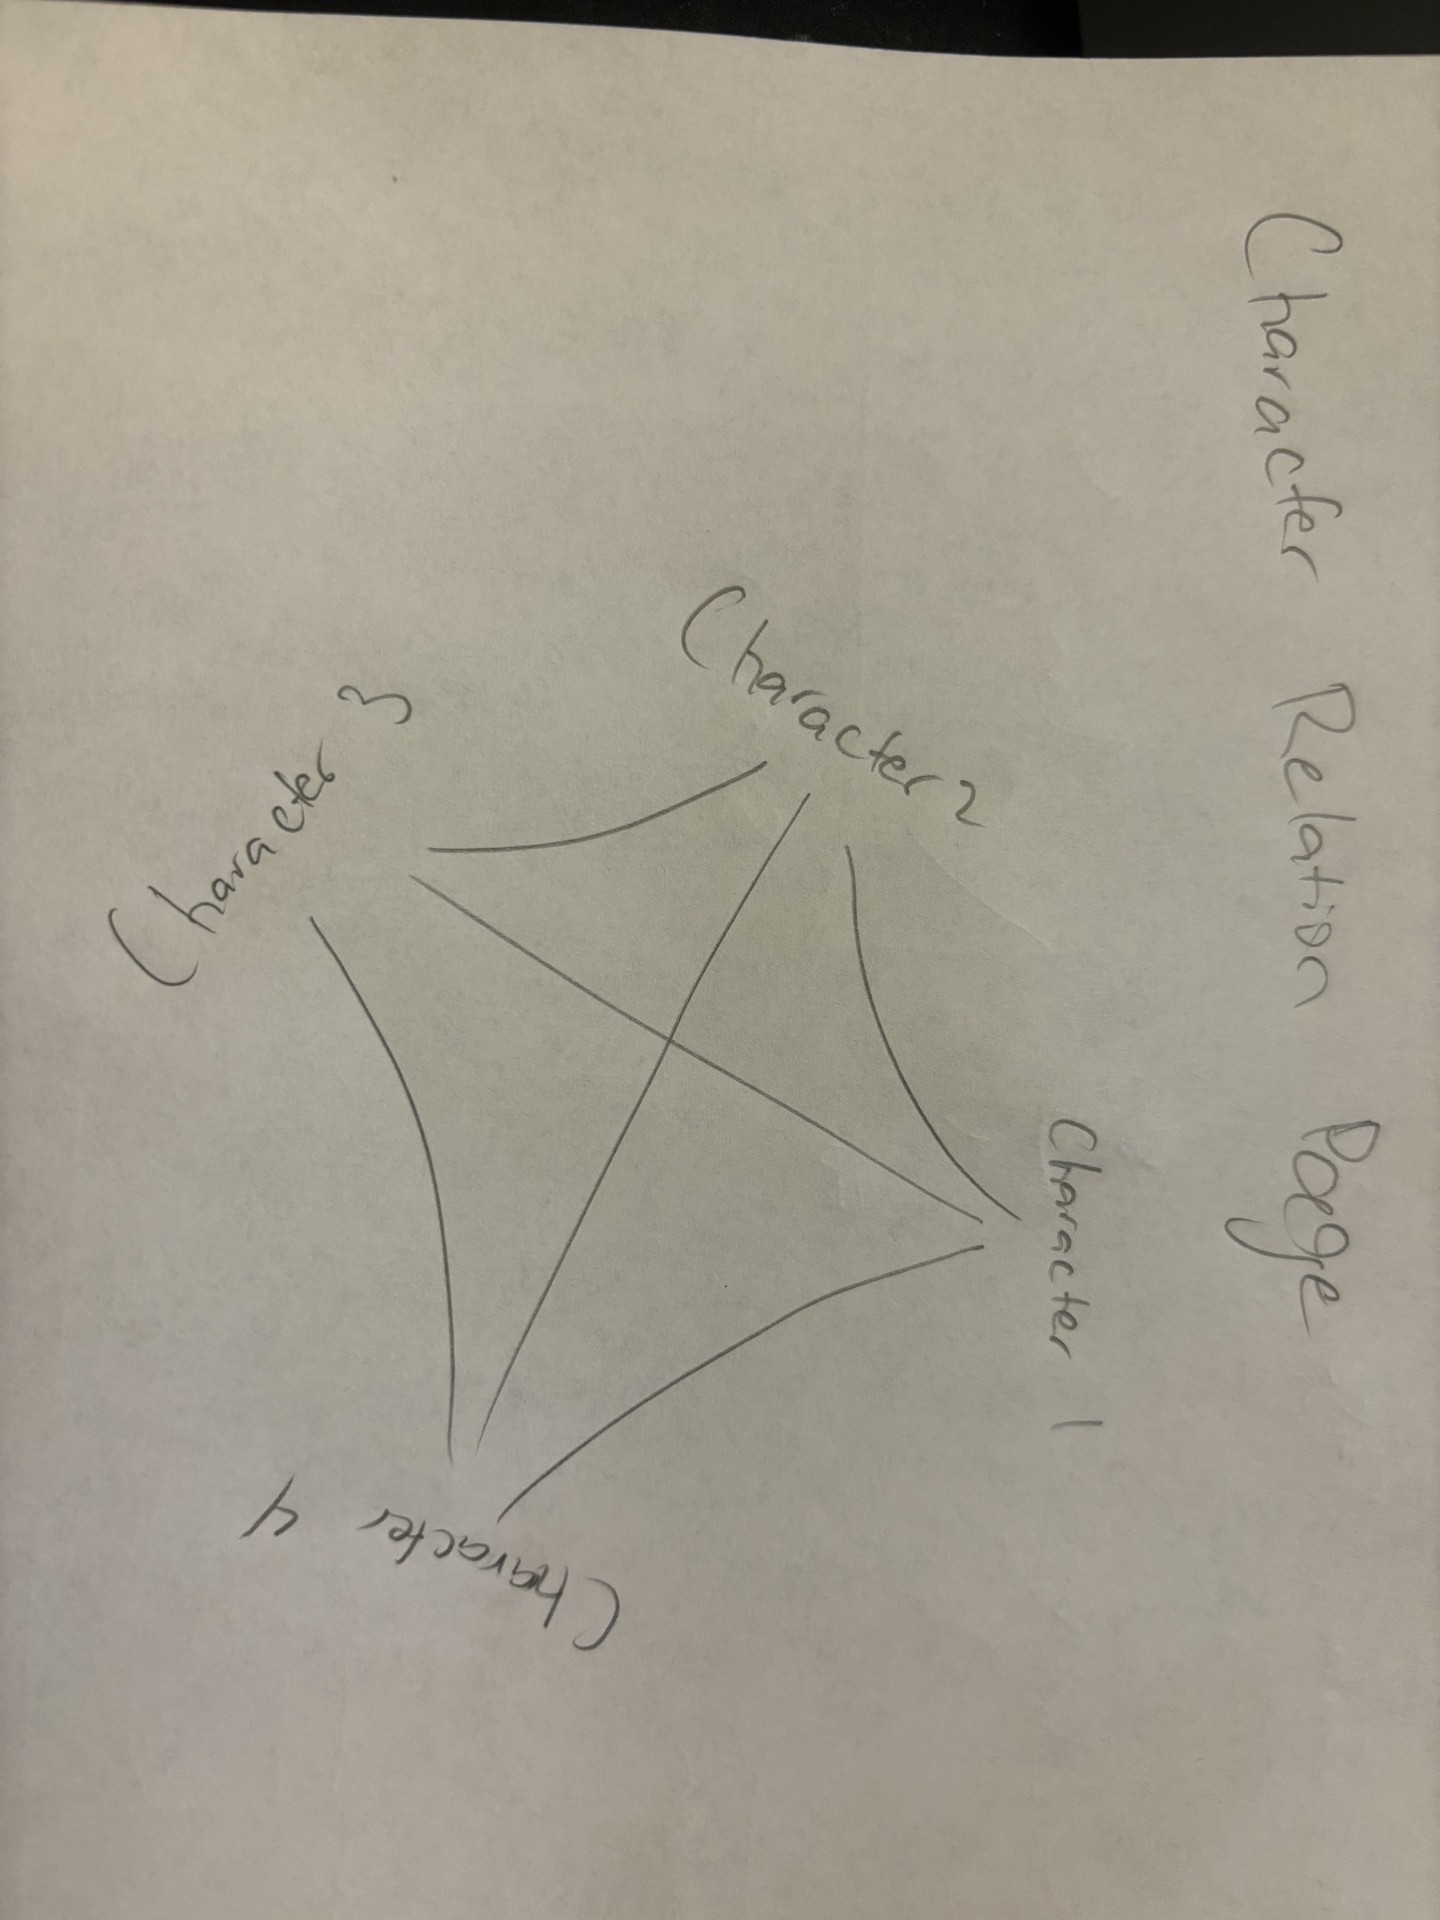 Character Relation Page
Character 1
Character 2
Character 3
Character 4